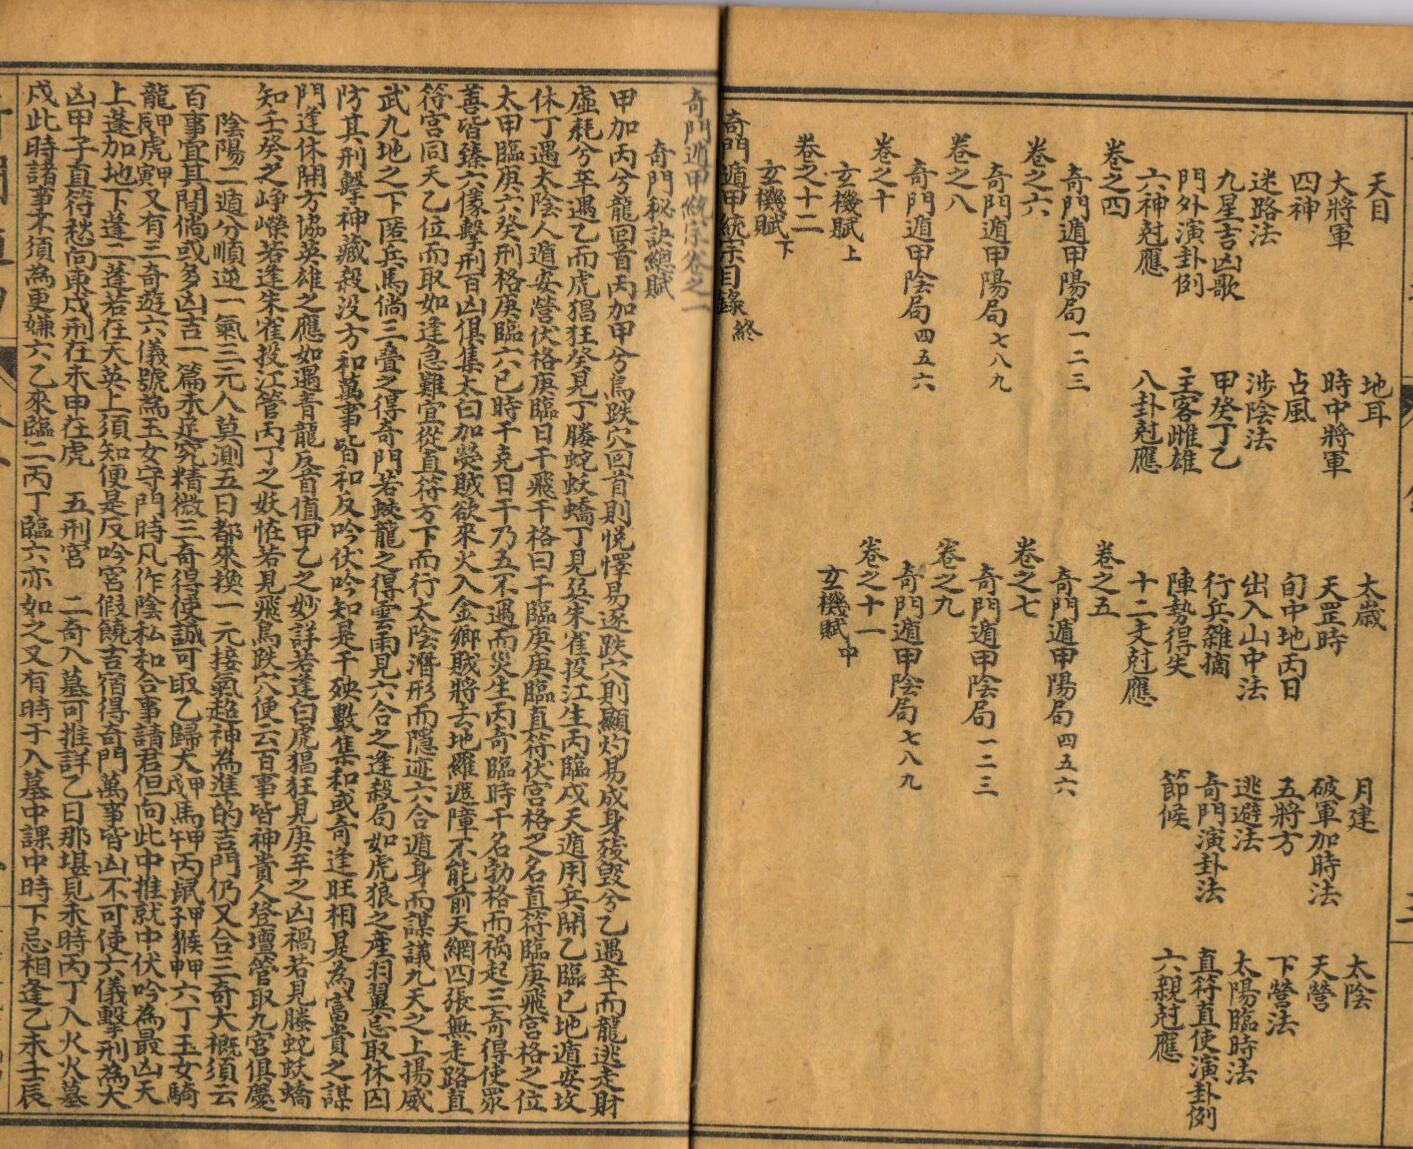 天目 地耳 太歲 月建 太陰
大將軍 時中將軍 天罡時 破軍加時法 天營
四神 占風 旬中地丙日 五將方 下營法
迷路法 涉陰法 出入山中法 逃避法 太陽臨時法
九星吉凶歌 甲癸丁乙 行兵雜摘 奇門演卦法 直符直使演卦例
門外演卦例 主客雌雄 陣勢得失 節候 六親尅應
六神尅應 八卦尅應 十二支尅應
卷之四 卷之五
奇門遁甲陽局一二三 奇門遁甲陽局四五六
卷之六 卷之七
奇門遁甲陽局七八九 奇門遁甲陰局一二三
卷之八 卷之九
奇門遁甲陰局四五六 奇門遁甲陰局七八九
卷之十 卷之十一
玄機賦上 玄機賦中
卷之十二
玄機賦下
奇門遁甲統宗目錄終
奇門遁甲統宗卷之一
奇門秘訣總賦
甲加丙兮龍回首丙加甲兮鳥跌穴回首則悅懌易遂跌穴則顯灼易成身殘毀兮乙遇辛而龍逃走財
虛耗兮辛遇乙而虎猖狂癸見丁螣蛇妖蟜丁見癸朱雀投江生丙臨戊天遁用兵開乙臨己地遁安墳
休丁遇太陰人遁安營伏格庚臨日干飛干格日干臨庚庚臨直符伏宮格之名直符臨庚飛宮格之位
太甲臨庚六癸刑格庚臨六己時干尅日干乃五不遇而災生丙奇臨時干名勃格而祸起三奇得使眾
善皆臻六儀擊刑百凶俱集太白加熒賊欲來火入金鄉賊將去地羅遮障不能前天網四張無走路直
符宮同天乙位而取如逢急難宜從直符方下而行太陰潛形而隱迹六合遁身而謀議九天之上揚威
武九地之下匿兵馬倘三疊之得奇門若蛟龍之得雲雨見六合之逢殺局如虎狼之產羽翼忌取休囚
防其刑擊神藏殺没方和萬事皆和反吟伏吟知是千殃數集和或奇逢旺相是為富貴之謀
門逢休開方協英雄之應如遇青龍反首值甲乙之妙詳若逢白虎猖狂見庚辛之凶禍若見螣蛇妖蟜
知壬癸之崢嶸若逢朱雀投江管丙丁之妖怪若見飛鳥跌穴便云百事皆神貴人登壇管取九宮俱慶
陰陽二遁分順逆一氣三元人莫測五日都來換一元接氣超神為準的吉門仍又合三奇大概須云
百事宜其間倘或多凶吉一篇未足究精微三奇得使誠可取乙歸犬甲戌馬甲午丙鼠甲子猴甲申六丁玉女騎
龍甲辰虎甲寅又有三奇遊六儀號為玉女守門時凡作陰私和合事請君但向此中推就中伏吟為最凶天
上蓬加地下蓬二蓬若在天英上須知便是反吟宮假饒吉宿得奇門萬事皆凶不可使六儀擊刑為大
凶甲子直符愁向東戌刑在未申在虎 五刑宮 二奇入墓可推詳乙日那堪見未時丙丁入火火墓
戌此時諸事不須為更嫌六乙來臨二丙丁臨六亦如之又有時干入墓中課中時下忌相逢乙未壬辰